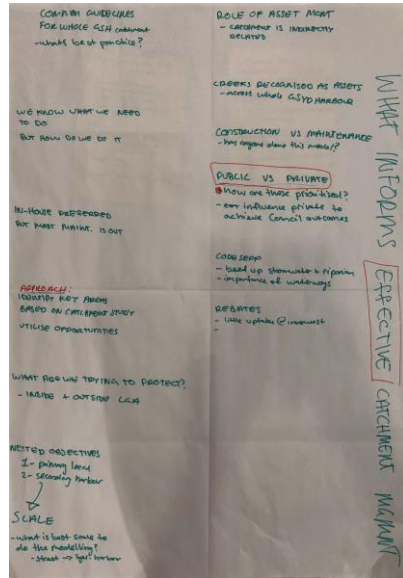 COMMON GUIDELINES
FOR WHOLE GSH catchment
- whats best practice?
WE KNOW WHAT WE NEED
TO DO
BUT HOW DO WE DO IT
IN-HOUSE PREFERRED
BUT MOST MAINT. IS OUT
APPROACH:
IDENTIFY KEY AREAS
BASED ON CATCHMENT STUDY
UTILISE OPPORTUNITIES
WHAT ARE WE TRYING TO PROTECT?
- INSIDE + OUTSIDE LGA
NESTED OBJECTIVES
1 - primary local
2 - secondary harbour
SCALE
- what is best scale to
do the modelling?
- street → Syd harbour
ROLE OF ASSET MGMT
- CATCHMENT IS INDIRECTLY
RELATED
CREEKS RECOGNISED AS ASSETS
- across whole GSYD HARBOUR
CONSTRUCTION VS MAINTENANCE
- has anyone done this model?
PUBLIC VS PRIVATE
how are those prioritised?
- can influence private to
achieve Council outcomes
CODE SEPP
- beef up stormwater + riparian
- importance of waterways
REBATES
- little uptake @ innerwest
-
WHAT INFORMS EFFECTIVE CATCHMENT MGMNT